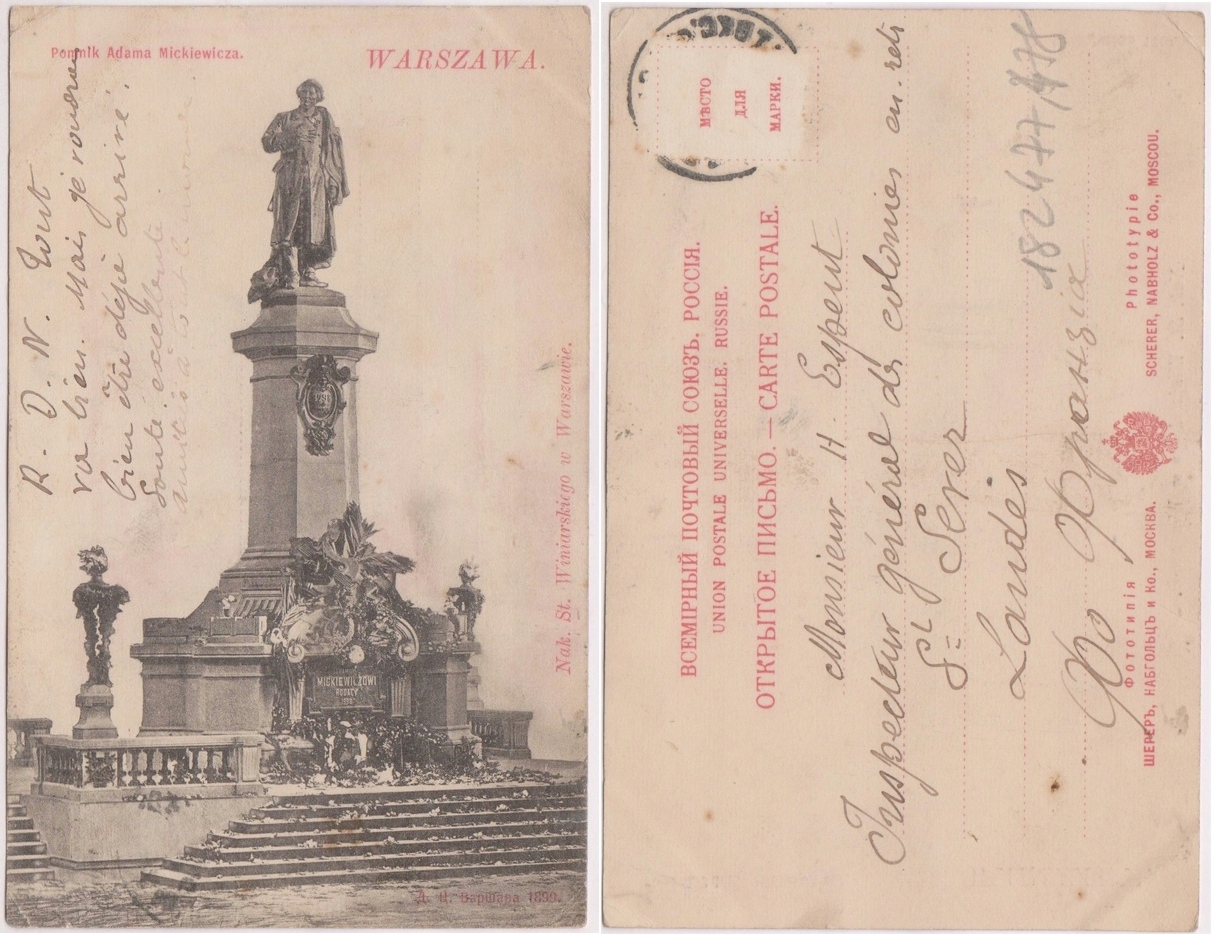 Pomnik Adama Mickiewicza.
WARSZAWA.
R. D. N. Tout
va bien. Mais je voudrais
bien être déjà arrivé.
Santé excellente
amitiés à tout le
Nak. St. Winiarskiego w Warszawie.
MICKIEWICZOWI
RODACY
Д. Ц. Варшава 1899.
МѢСТО
ДЛЯ
МАРКИ.
ВСЕМІРНЫЙ ПОЧТОВЫЙ СОЮЗЪ. РОССІЯ.
UNION POSTALE UNIVERSELLE. RUSSIE.
ОТКРЫТОЕ ПИСЬМО. — CARTE POSTALE.
Monsieur H. Espent
Inspecteur général des colonies en. retr
St Sever
Landes
Во Францiю
182477/478
Фототипія
ШЕРЕРЪ, НАБГОЛЬЦЪ и Ко., МОСКВА.
Phototypie
SCHERER, NABHOLZ & Co., MOSCOU.